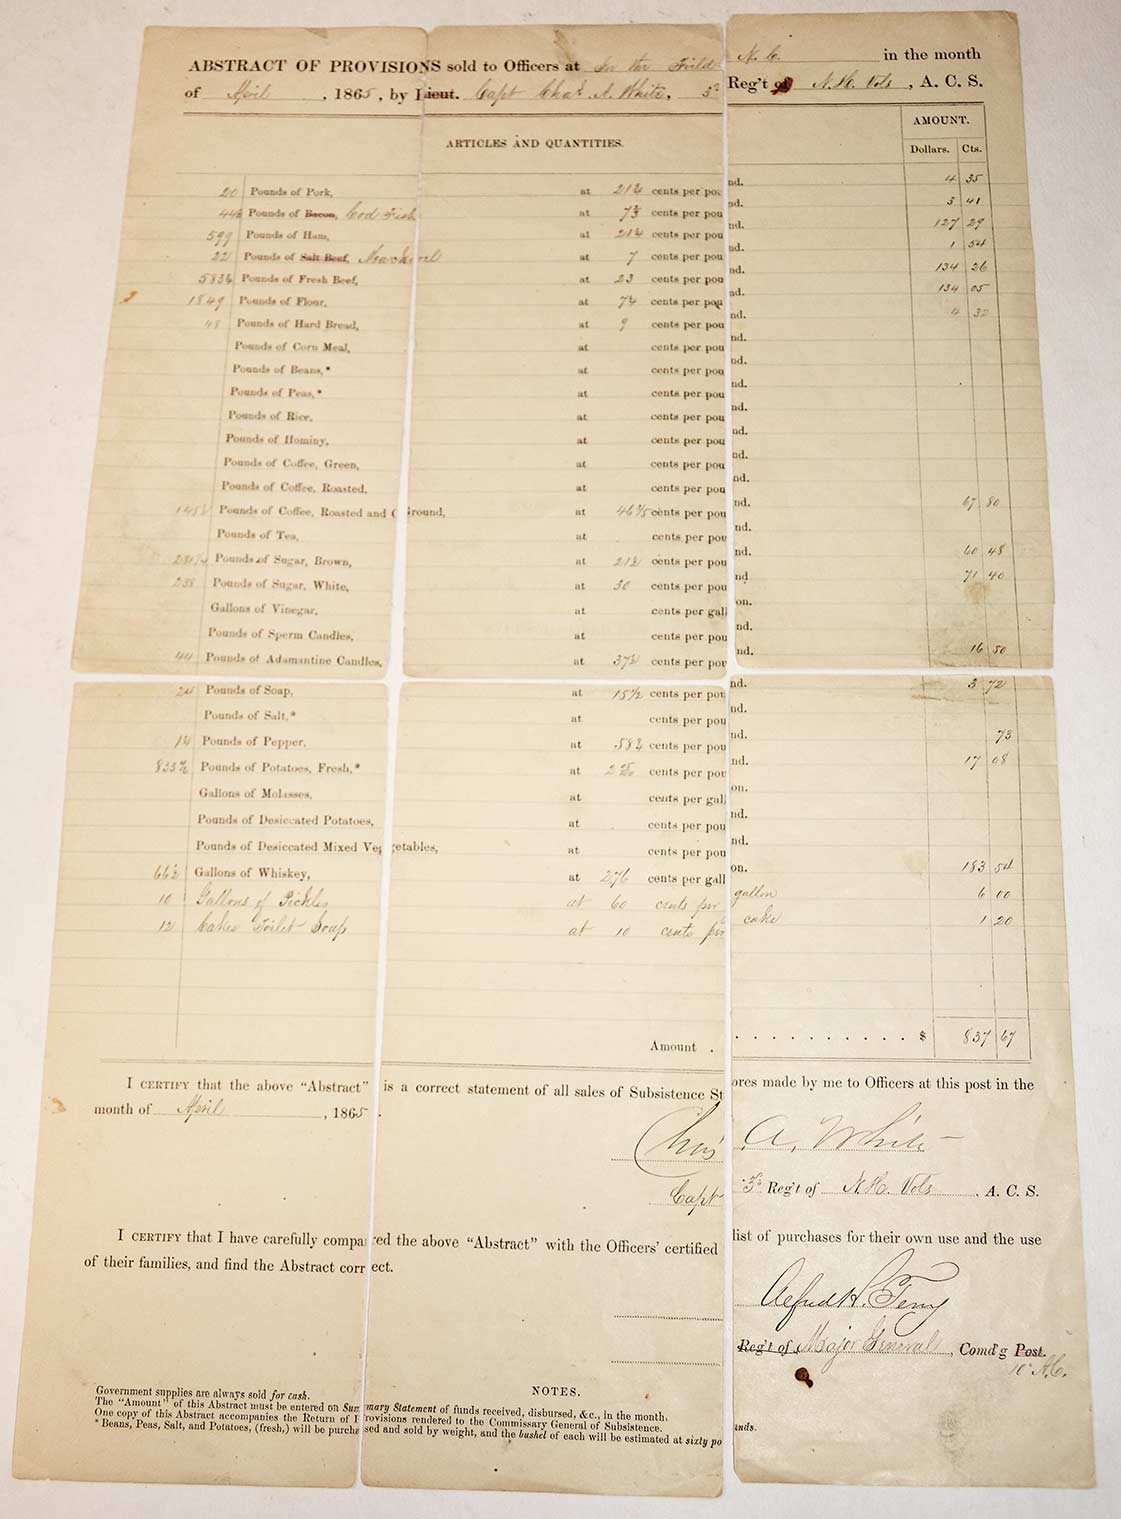 ABSTRACT OF PROVISIONS sold to Officers at In the Field N. C. in the month
of April, 1865, by Lieut. Capt Chas A. White, 3d Reg't of N. H. Vols, A. C. S.
ARTICLES AND QUANTITIES. AMOUNT.
Dollars. Cts.
20 Pounds of Pork, at 21¾ cents per pound. 4 35
44½ Pounds of Bacon, Cod Fish at 7⅔ cents per pound. 3 41
599 Pounds of Ham, at 21¼ cents per pound. 127 29
22 Pounds of Salt Beef, Mackerel at 7 cents per pound. 1 54
583¾ Pounds of Fresh Beef, at 23 cents per pound. 134 26
1849 Pounds of Flour, at 7¼ cents per pound. 134 05
48 Pounds of Hard Bread, at 9 cents per pound. 4 32
Pounds of Corn Meal, at cents per pound.
Pounds of Beans,* at cents per pound.
Pounds of Peas,* at cents per pound.
Pounds of Rice, at cents per pound.
Pounds of Hominy, at cents per pound.
Pounds of Coffee, Green, at cents per pound.
Pounds of Coffee, Roasted, at cents per pound.
Pounds of Coffee, Roasted and Ground, at cents per pound. 67 80
Pounds of Tea, at cents per pound.
Pounds of Sugar, Brown, at 21½ cents per pound. 60 48
238 Pounds of Sugar, White, at 30 cents per pound 71 40
Gallons of Vinegar, at cents per gallon.
Pounds of Sperm Candles, at cents per pound.
44 Pounds of Adamantine Candles, at 37½ cents per pound. 16 50
24 Pounds of Soap, at 15½ cents per pound. 3 72
Pounds of Salt,* at cents per pound.
1¼ Pounds of Pepper, at 58½ cents per pound. 73
Pounds of Potatoes, Fresh,* at cents per pound. 17 08
Gallons of Molasses, at cents per gallon.
Pounds of Desiccated Potatoes, at cents per pound.
Pounds of Desiccated Mixed Vegetables, at cents per pound.
66½ Gallons of Whiskey, at 276 cents per gallon. 183 54
10 Gallons of Pickles at 60 cents per gallon 6 00
12 Cakes Toilet Soap at 10 cents per cake 1 20
Amount . . . . . . . . . . . $ 837 67
I CERTIFY that the above "Abstract" is a correct statement of all sales of Subsistence Stores made by me to Officers at this post in the
month of April, 1865.
Chas A. White
Capt 3d Reg't of N. H. Vols, A. C. S.
I CERTIFY that I have carefully compared the above "Abstract" with the Officers' certified list of purchases for their own use and the use
of their families, and find the Abstract correct.
Alfred H. Terry
Reg't of Major General, Comd'g Post.
10" A.C.
NOTES.
Government supplies are always sold for cash.
The "Amount" of this Abstract must be entered on Summary Statement of funds received, disbursed, &c., in the month.
One copy of this Abstract accompanies the Return of Provisions rendered to the Commissary General of Subsistence.
*Beans, Peas, Salt, and Potatoes, (fresh,) will be purchased and sold by weight, and the bushel of each will be estimated at sixty pounds.